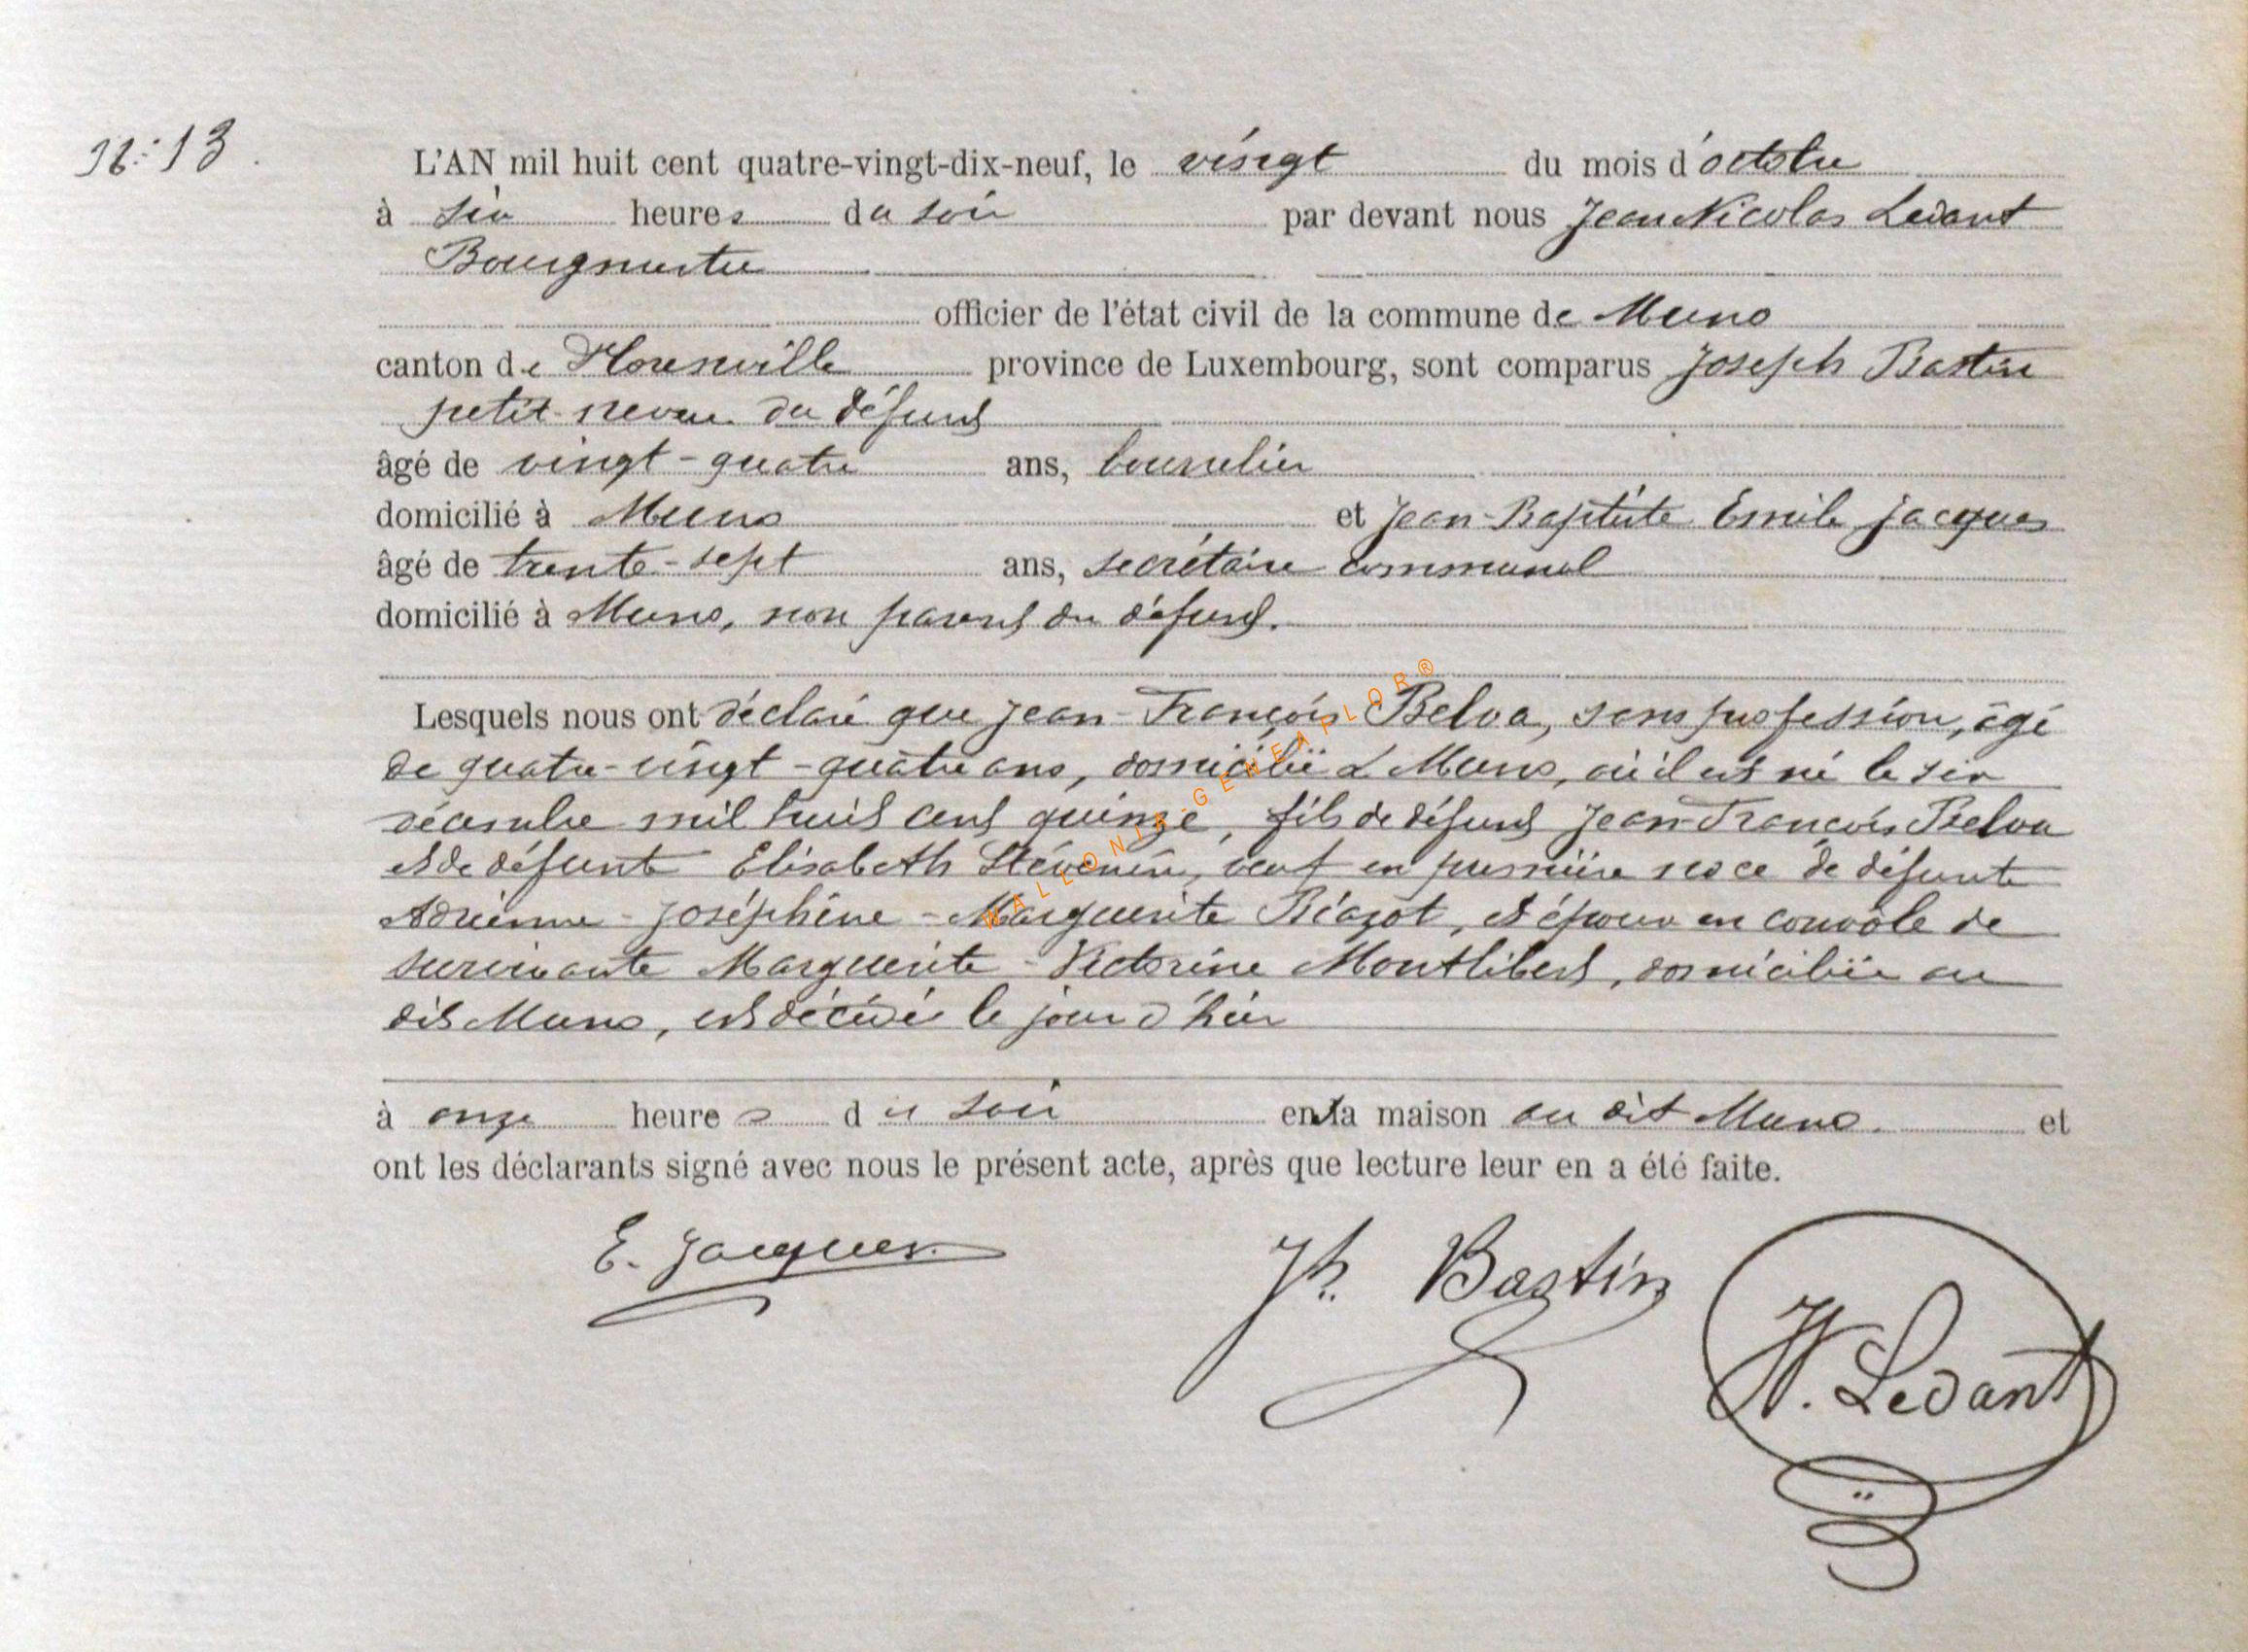 N° 13.
L'AN mil huit cent quatre-vingt-dix-neuf, le vingt du mois d'octobre
à six heures du soir par devant nous Jean Nicolas Ledant
Bourgmestre
officier de l'état civil de la commune de Muno
canton de Florenville province de Luxembourg, sont comparus Joseph Bastin
petit-neveu du défunt
âgé de vingt-quatre ans, bourrelier
domicilié à Muno et Jean-Baptiste Emile Jacques
âgé de trente-sept ans, secrétaire communal
domicilié à Muno, non parent du défunt.
Lesquels nous ont déclaré que Jean-François Belva, sans profession, âgé
de quatre-vingt-quatre ans, domicilié à Muno, où il est né le six
décembre mil huit cent quinze, fils de défunt Jean-François Belva
et de défunte Elisabeth Stévenin, veuf en première noce de défunte
Adrienne-Joséphine-Marguerite Béazot, et époux en convôle de
survivante Marguerite-Victorine Montlibert, domiciliée au
dit Muno, est décédé le jour d'hier
à onze heures du soir en sa maison au dit Muno. et
ont les déclarants signé avec nous le présent acte, après que lecture leur en a été faite.
E. Jacques
Jh. Bastin
N. Ledant
WALLONIE-GENEAPLOR®